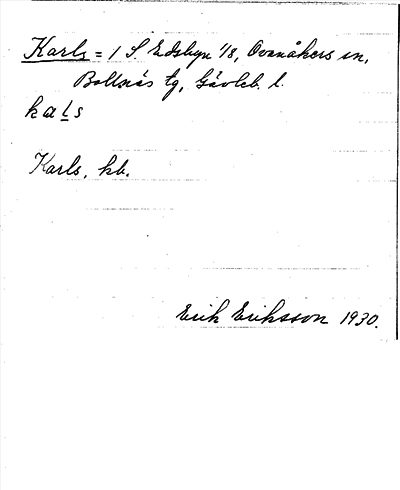 Karls = / S. Edsbyn 1/8, Ovanåkers sn,
Bollnäs tg, Gävleb. l.
kals
Karls, hb.
Erik Eriksson 1930.